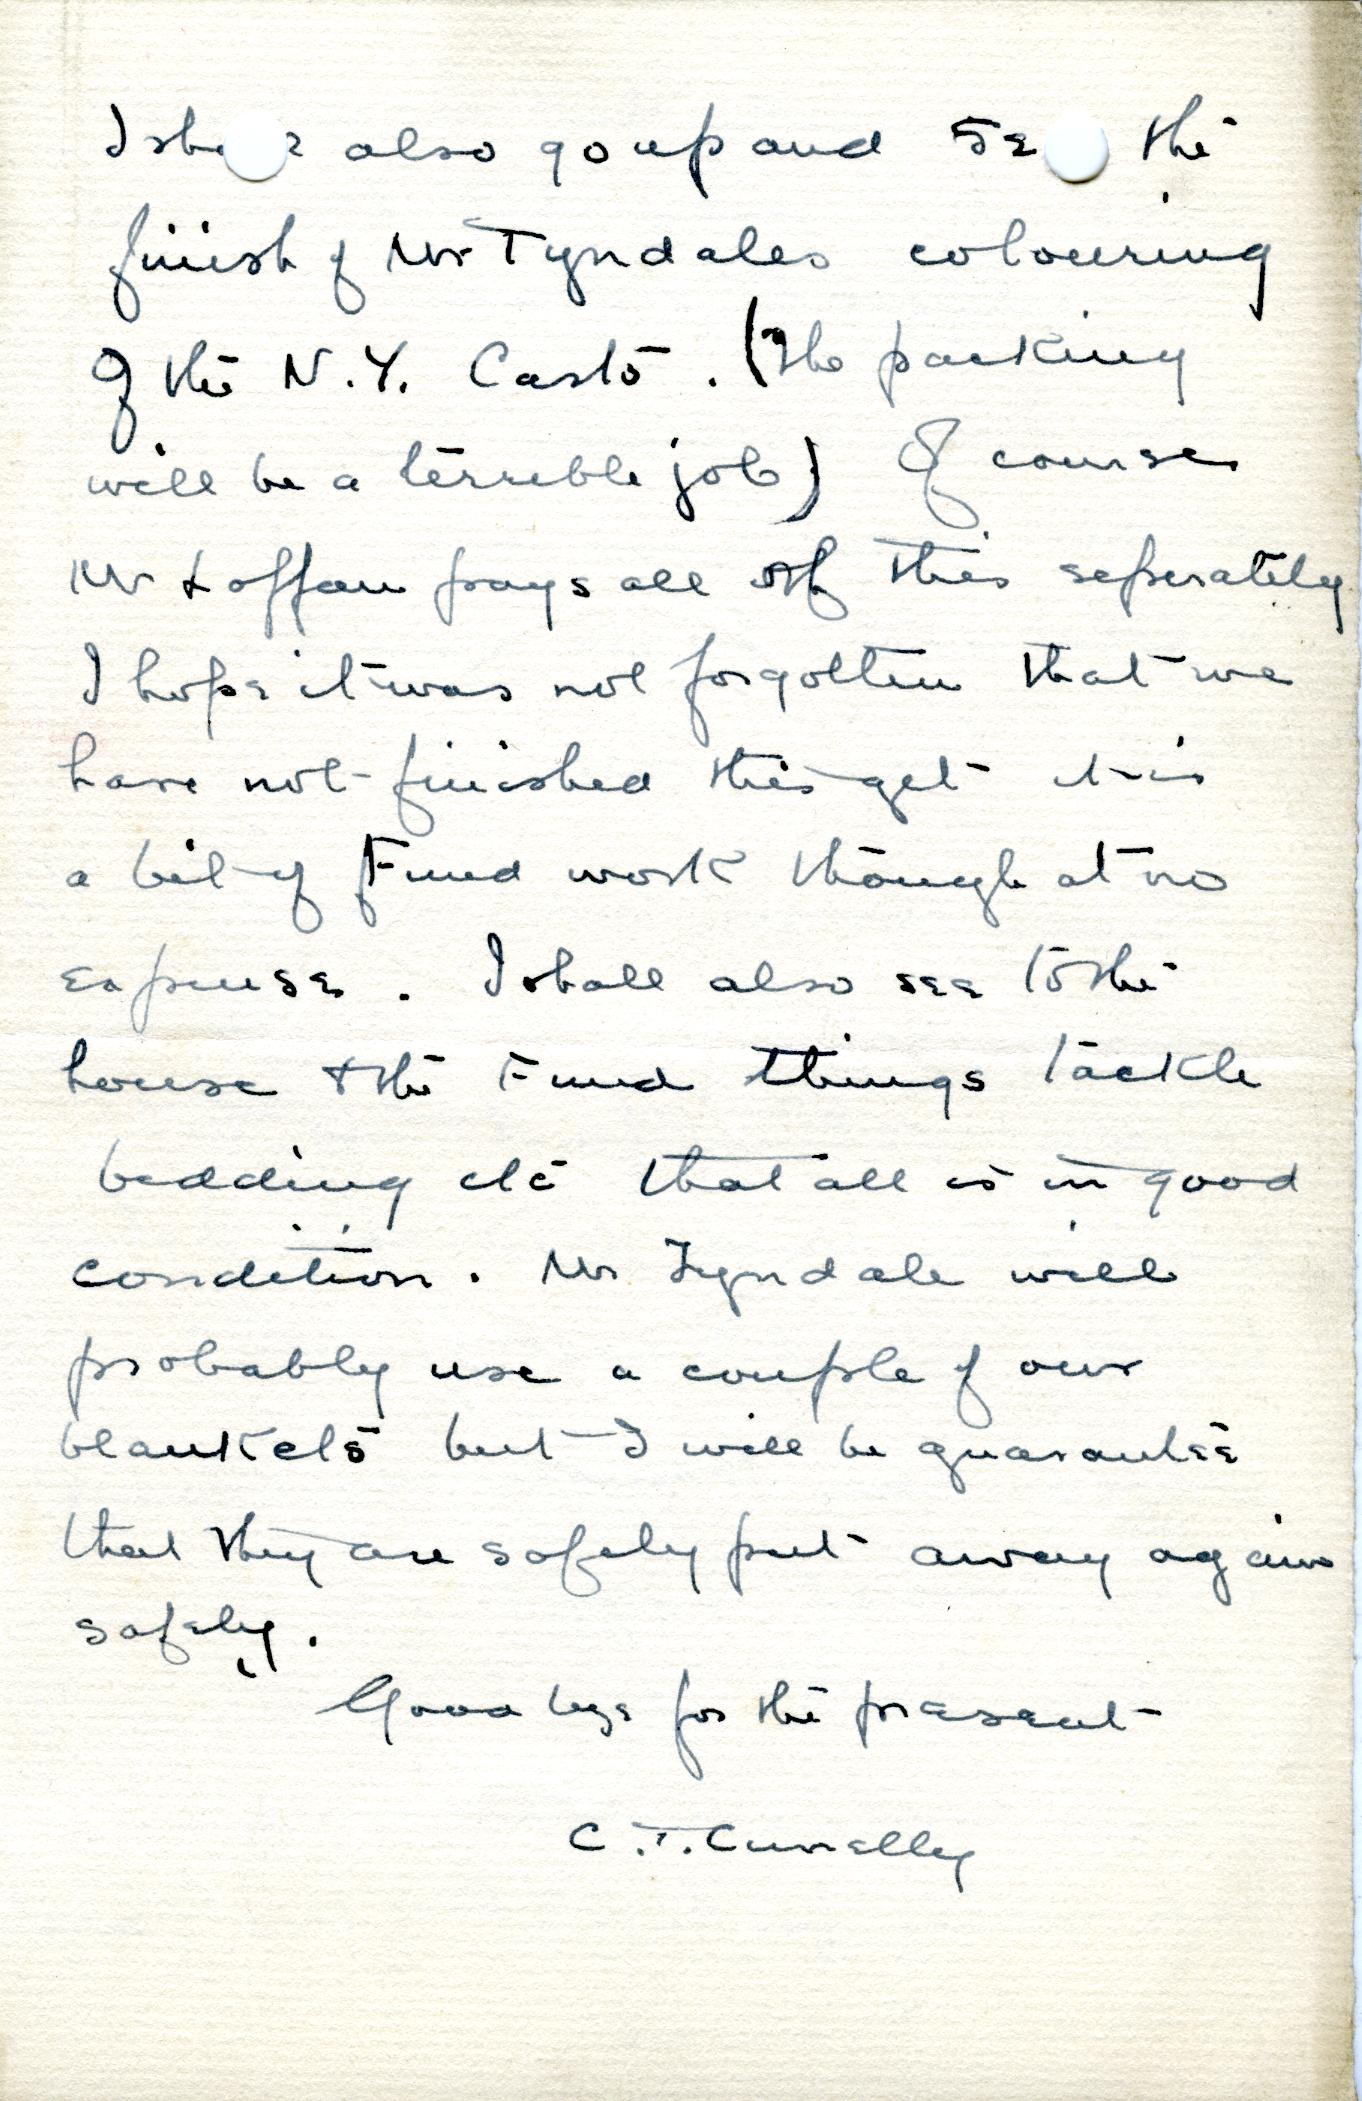 I shall also go up and see the
finish of Mr Tyndales colouring
of the N.Y. Casts. (The packing
will be a terrible job) Of course
Mr Loffan pays all of this seperately
I hope it was not forgotten that we
have not finished this yet it is
a bit of Fund work though at no
expense. I shall also see to the
house & the Fund things tackle
bedding etc that all is in good
condition. Mr Tyndale will
probably use a couple of our
blankets but I will be guarantee
that they are safely put away again
safely.
Good bye for the present
C.T. Currelly